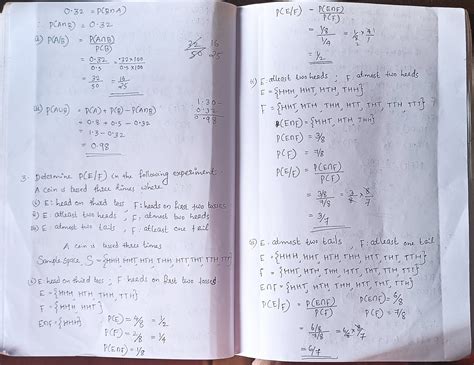 0.32 = P(B∩A)
P(A∩B) = 0.32
ii) P(A/B) = P(A∩B) / P(B)
= 0.32 / 0.5 = .32×100 / 0.5×100
= 32/50 = 16/25
iii) P(A∪B) = P(A) + P(B) - P(A∩B)
= 0.8 + 0.5 - 0.32
= 1.3 - 0.32
= 0.98
1.30 -
0.32
0.98
3. Determine P(E/F) in the following experiments
A coin is tossed three times where
(i) E: head on third toss, F: heads on first two tosses
ii) E atleast two heads ; F: atmost two heads
iii) E: atmost two tails ; F: atleast one tail
A coin is tossed three times
Sample space S = {HHH, HHT, HTH, THH, HTT, THT, TTH, TTT}
(i) E: head on third toss ; F heads on first two tosses
E = {HHH, HTH, THH, TTH}
F = {HHH, HHT}
E∩F = {HHH}
P(E) = 4/8 = 1/2
P(F) = 2/8 = 1/4
P(E∩F) = 1/8
P(E/F) = P(E∩F) / P(F)
= 1/8 / 1/4
= 1/2
ii) E: atleast two heads ; F: atmost two heads
E = {HHH, HHT, HTH, THH}
F = {HHT, HTH, THH, HTT, THT, TTH, TTT}
(E∩F) = {HHT, HTH, THH}
P(E∩F) = 3/8
P(F) = 7/8
P(E/F) = P(E∩F) / P(F)
= 3/8 / 7/8 = 3/8 × 8/7
= 3/7
iii) E: atmost two tails ; F: atleast one tail
E = {HHH, HHT, HTH, THH, HTT, THT, TTH}
F = {HHT, HTH, THH, HTT, THT, TTH, TTT}
E∩F = {HHT, HTH, THH, HTT, THT, TTH}
P(E/F) = P(E∩F) / P(F)
P(E∩F) = 6/8
P(F) = 7/8
= 6/8 / 7/8 = 6/8 × 8/7
= 6/7